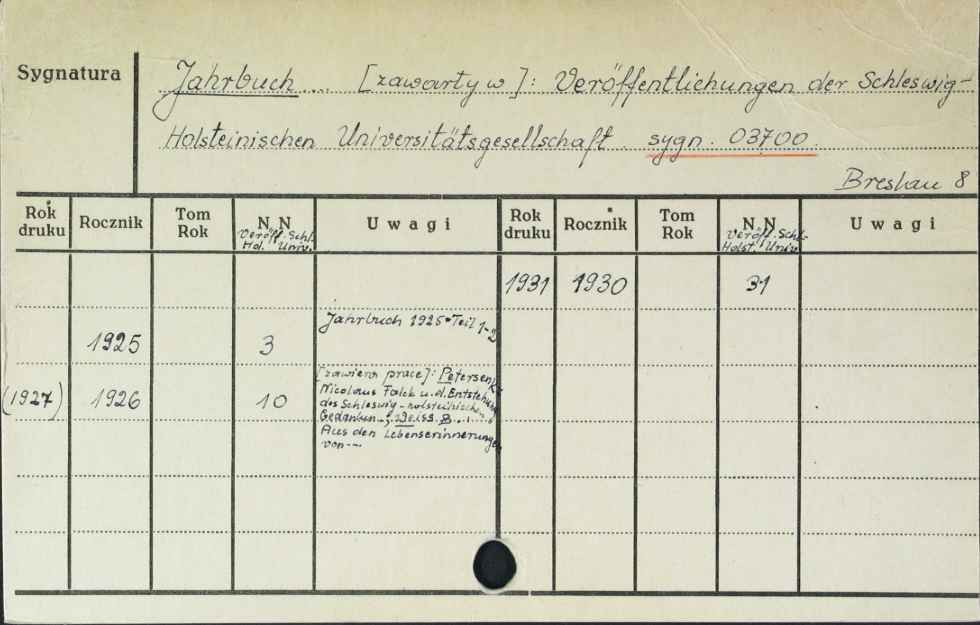 Sygnatura
Jahrbuch .... [zawarty w]: Veröffentlichungen der Schleswig-
Holsteinischen Universitätsgesellschaft. sygn. 03700.
Breslau 8
Rok druku Rocznik Tom Rok N N Veröff. Schl. Hol. Univ. Uwagi Rok druku Rocznik Tom Rok N N Veröff. Schl. Holst. Univ. Uwagi
1931 1930 31
1925 3 Jahrbuch 1925 Teil 1-2
(1927) 1926 10 [zawiera prace]: Petersen
Nicolaus Falck u. d. Entstehung
des Schleswig-holsteinischen
Gedanken..; Weiss B....
Aus den Lebenserinnerungen
von ---